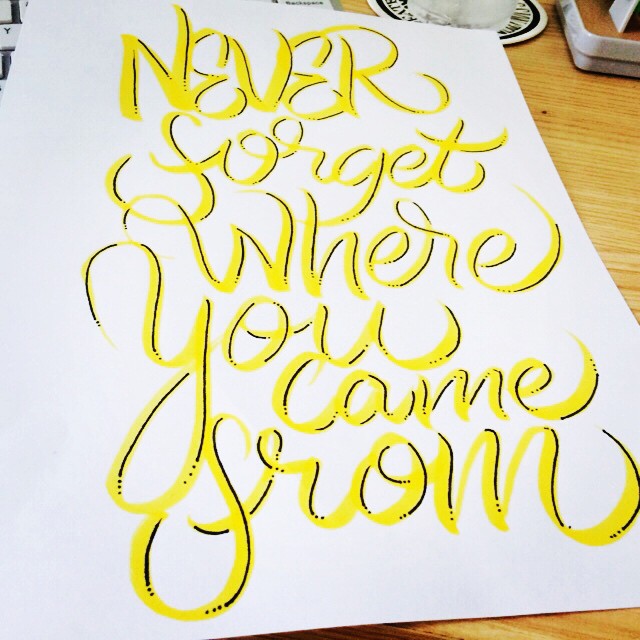 Backspace
Y
NEVER
forget
where
you
came
from